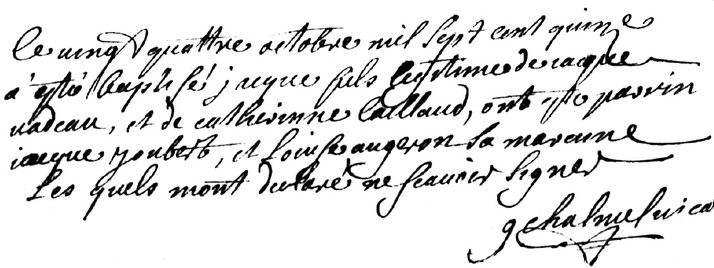 Le vingt quattre octobre mil sept cent quinse
a esté baptisé jacque fils legitime de jacque
nadeau, et de catherinne Caillaud, ont esté parrin
jacque joubert, et Louise augeron sa maraine
Les quels mont declaré ne scavoir signer